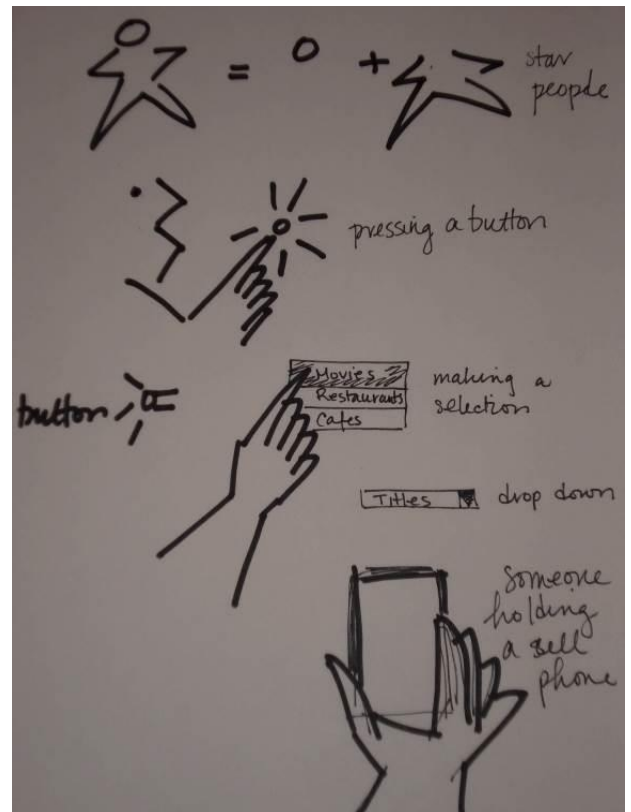 star
people
pressing a button
button
Movies
Restaurants
Cafes
making a
selection
Titles
drop down
someone
holding
a sell
phone